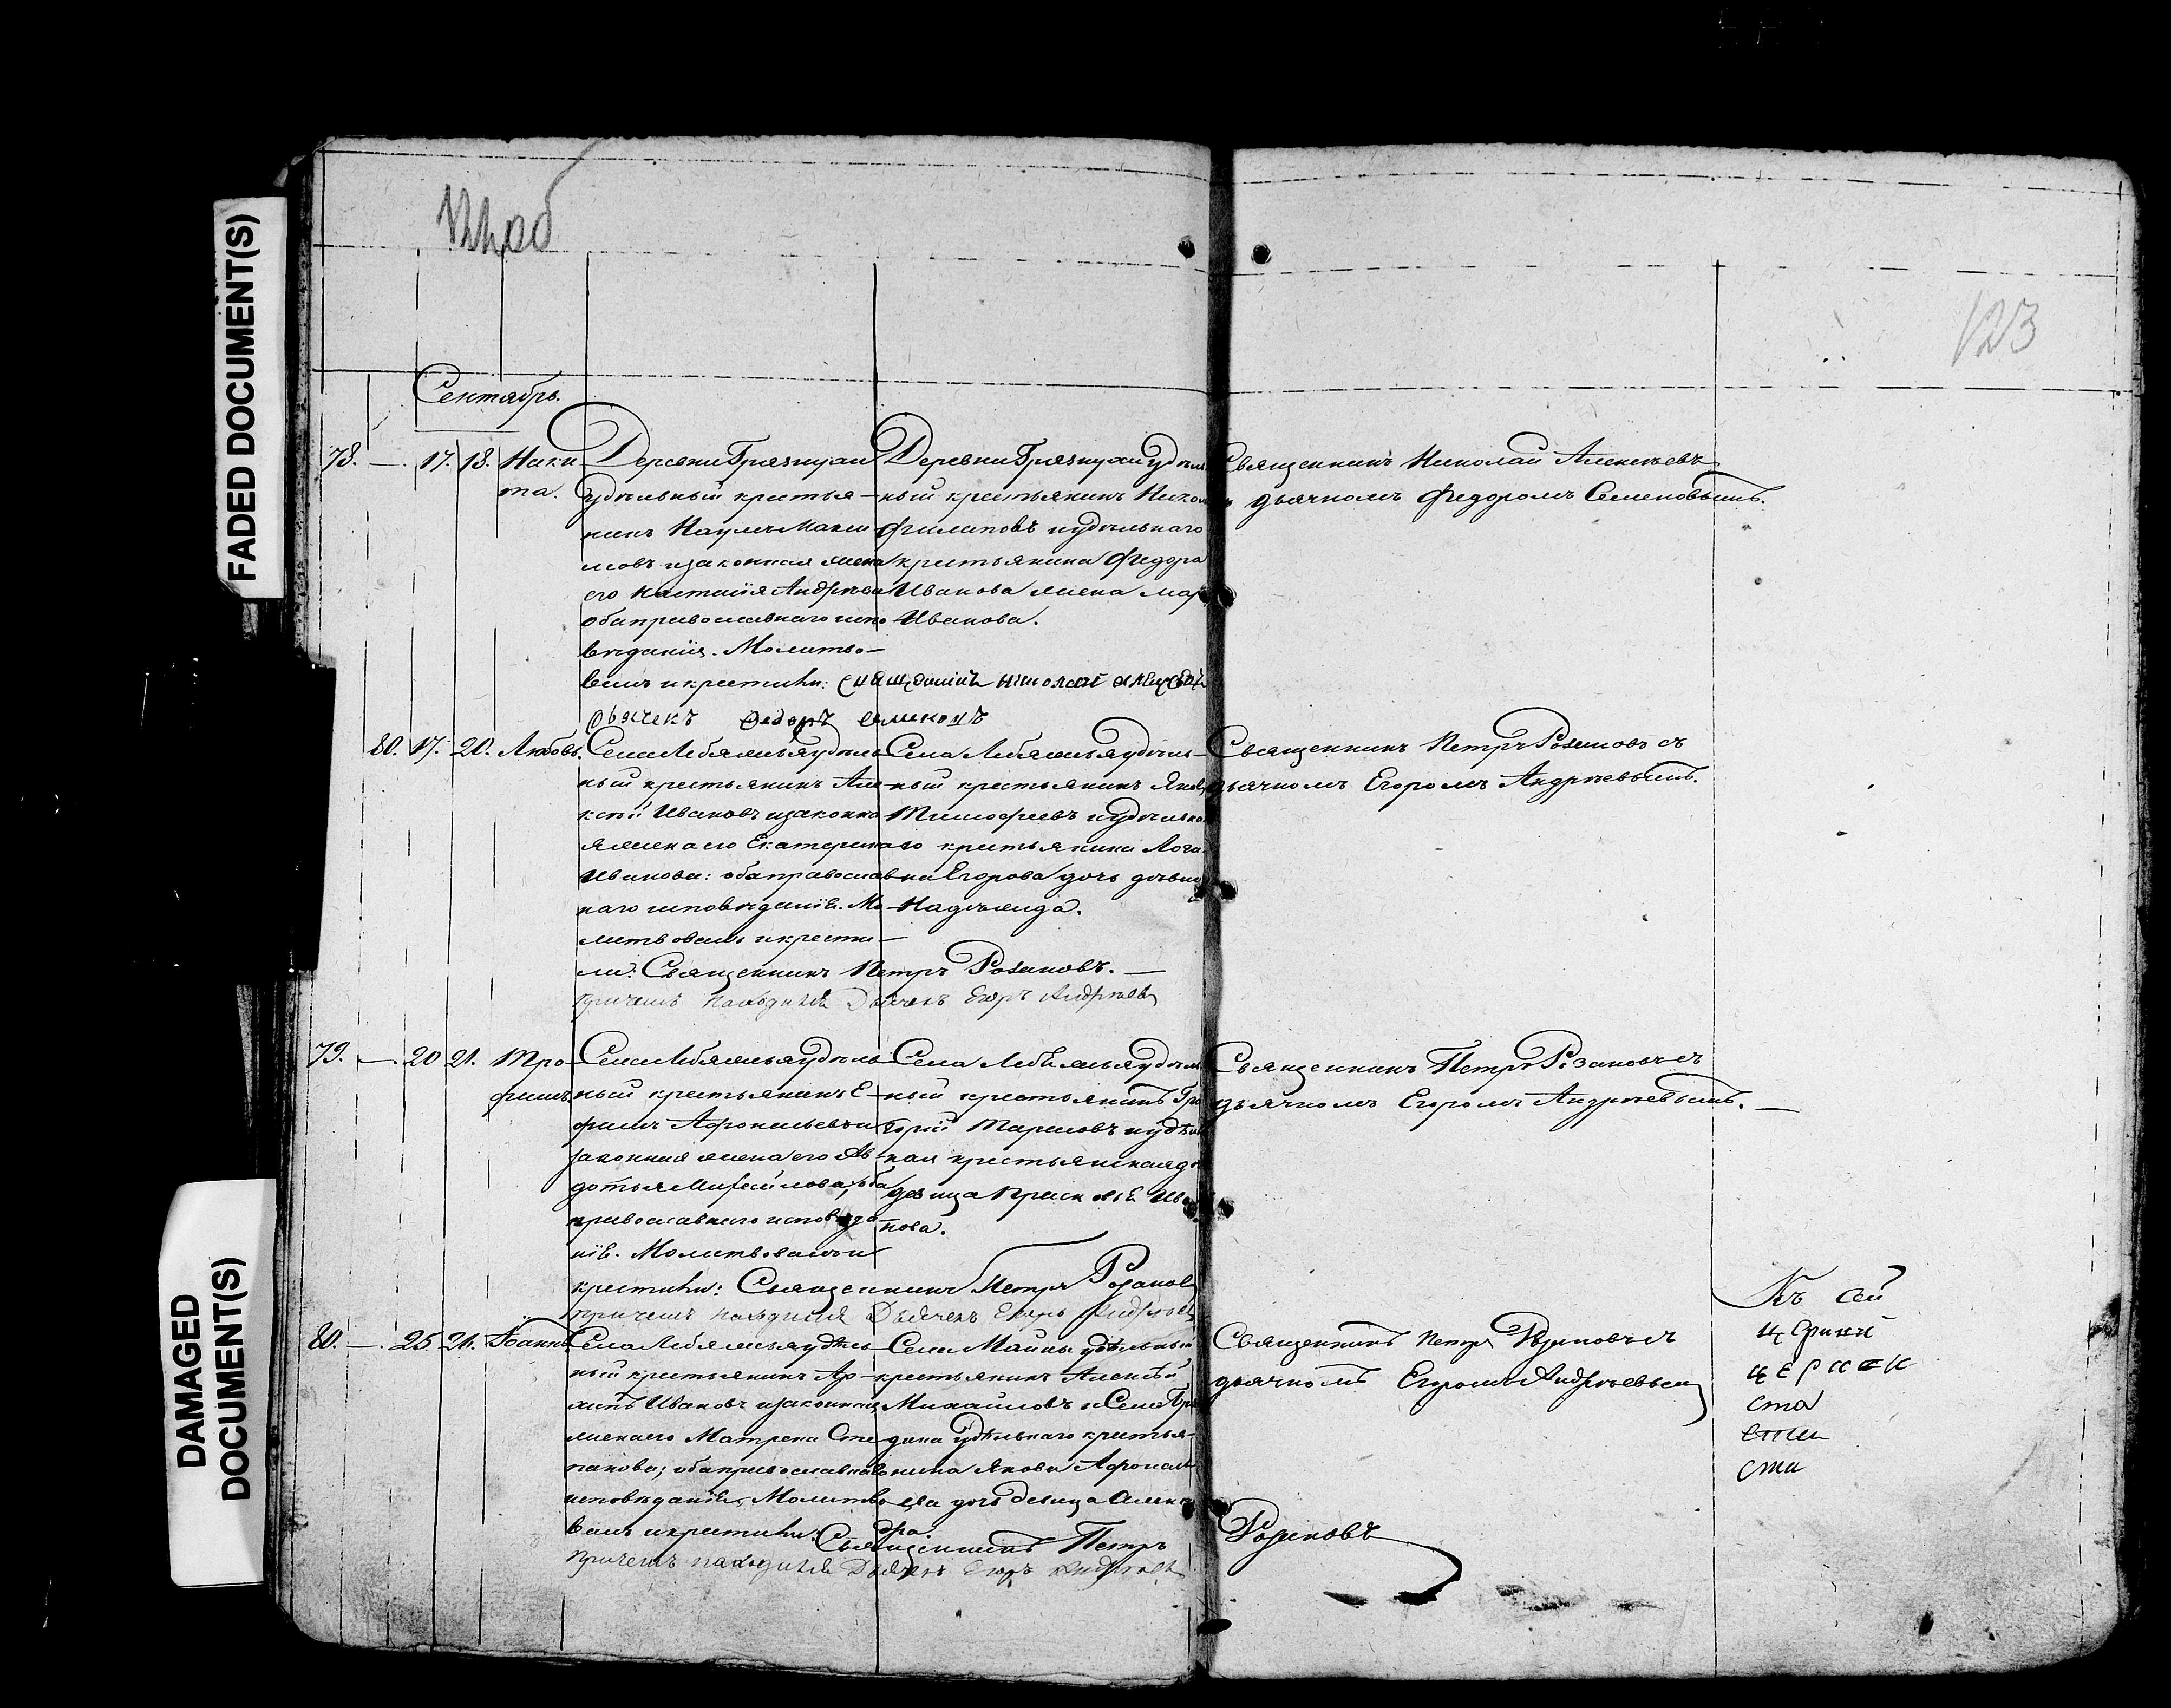 FADED DOCUMENT(S)
DAMAGED DOCUMENT(S)
123
Сентябрь.
78. —. 17. 18. Ники
та.
Деревни Грязнухи
удѣльный крестья-
нинъ Наумъ Макси
мовъ и законная жена
его Настасія Андрѣева
оба православнаго испо
вѣданія. Молитво-
валъ и крестилъ: священникъ николай алексѣевъ
дьячекъ Федоръ семеновъ
Деревни Грязнухи удѣль
ный крестьянинъ Никол
Филиповъ и удѣльнаго
крестьянина Федора
Иванова жена Мар
Иванова.
Священникъ Николай Алексѣевъ
съ дьячкомъ Федоромъ Семеновымъ.
80. 17. 20. Любовь.
Села Лебяжья удѣль
ный крестьянинъ Але
ксѣй Ивановъ и законна
я жена его Екатерина
Иванова: оба православ
наго исповѣданія. Мо
литвовалъ и крести-
ли: Священникъ Петръ Розановъ. —
при чемъ находился Дьячекъ Егоръ Андрѣевъ
Села Лебяжья удѣль-
ный крестьянинъ Яков
Тимофеевъ и удѣльна
го крестьянина Логи
на Егорова дочь дѣвица
Надѣжда.
Священникъ Петръ Розановъ съ
дьячкомъ Егоромъ Андрѣевымъ.
79. —. 20 21. Тро
фимъ.
Села Лебяжья удѣль
ный крестьянинъ Е
фимъ Афонасьевъ и
законная жена его Ав
дотья Михайлова, оба
православнаго исповѣда
нія. Молитвовалъ и
крестилъ: Священникъ Петръ Розановъ
при чемъ находился Дьячекъ Егоръ Андрѣевъ
Села Лебяжья удѣль
ный крестьянинъ Гри
горій Тарасовъ и удѣль
ная крестьянская до
дѣвица Прасковья Ива
нова.
Священникъ Петръ Розановъ съ
дьячкомъ Егоромъ Андрѣевымъ. —
80. —. 25 21. Іоаннъ
Села Лебяжья удѣль
ный крестьянинъ Ар
хипъ Ивановъ и законная
жена его Матрена Сте
панова; оба православнаго
исповѣданія, Молитво
валъ и крестилъ: Священникъ Петръ
при чемъ находился Дьячекъ Егоръ Андрѣевъ
Села Майны удѣльный
крестьянинъ Алексѣй
Михайловъ и Села
удѣльнаго крестья-
нина Якова Афонась
ева дочь дѣвица Алекс
дра.
Священникъ Петръ Розановъ съ
дьячкомъ Егоромъ Андрѣевымъ
Розановъ
Къ сей
ста
сти
ста